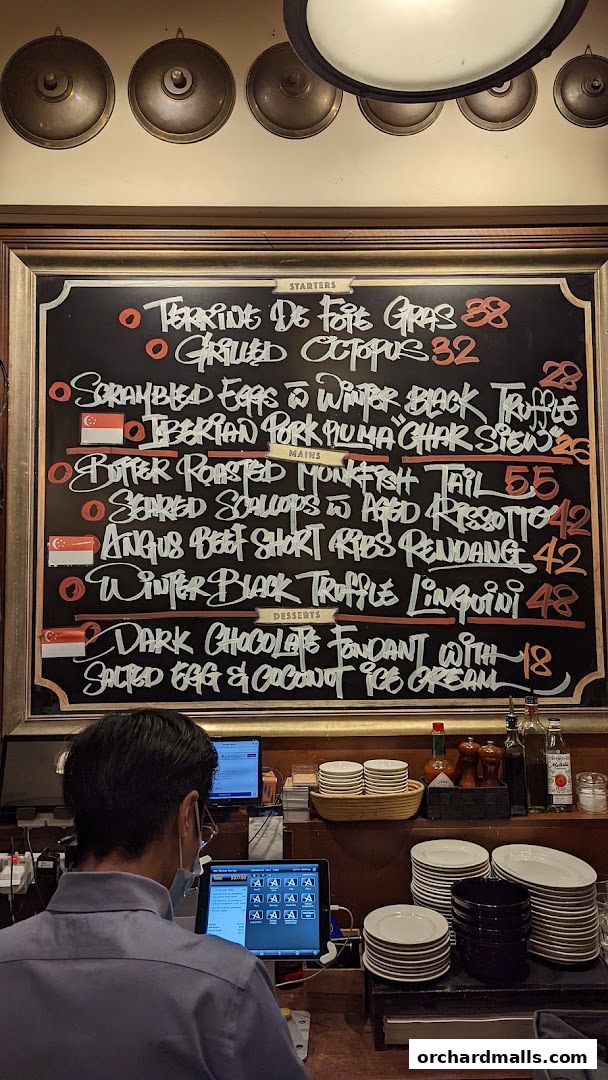 STARTERS
TERRINE DE FOIE GRAS 38
GRILLED OCTOPUS 32
SCRAMBLED EGGS W WINTER BLACK TRUFFLE 28
IBERIAN PORK PLUMA "CHAR SIEW" 26
MAINS
BUTTER ROASTED MONKFISH TAIL 55
SEARED SCALLOPS W AGED RISSOTTO 42
ANGUS BEEF SHORT RIBS RENDANG 42
WINTER BLACK TRUFFLE LINGUINI 48
DESSERTS
DARK CHOCOLATE FONDANT WITH 18
SALTED EGG & COCONUT ICE CREAM
orchardmalls.com